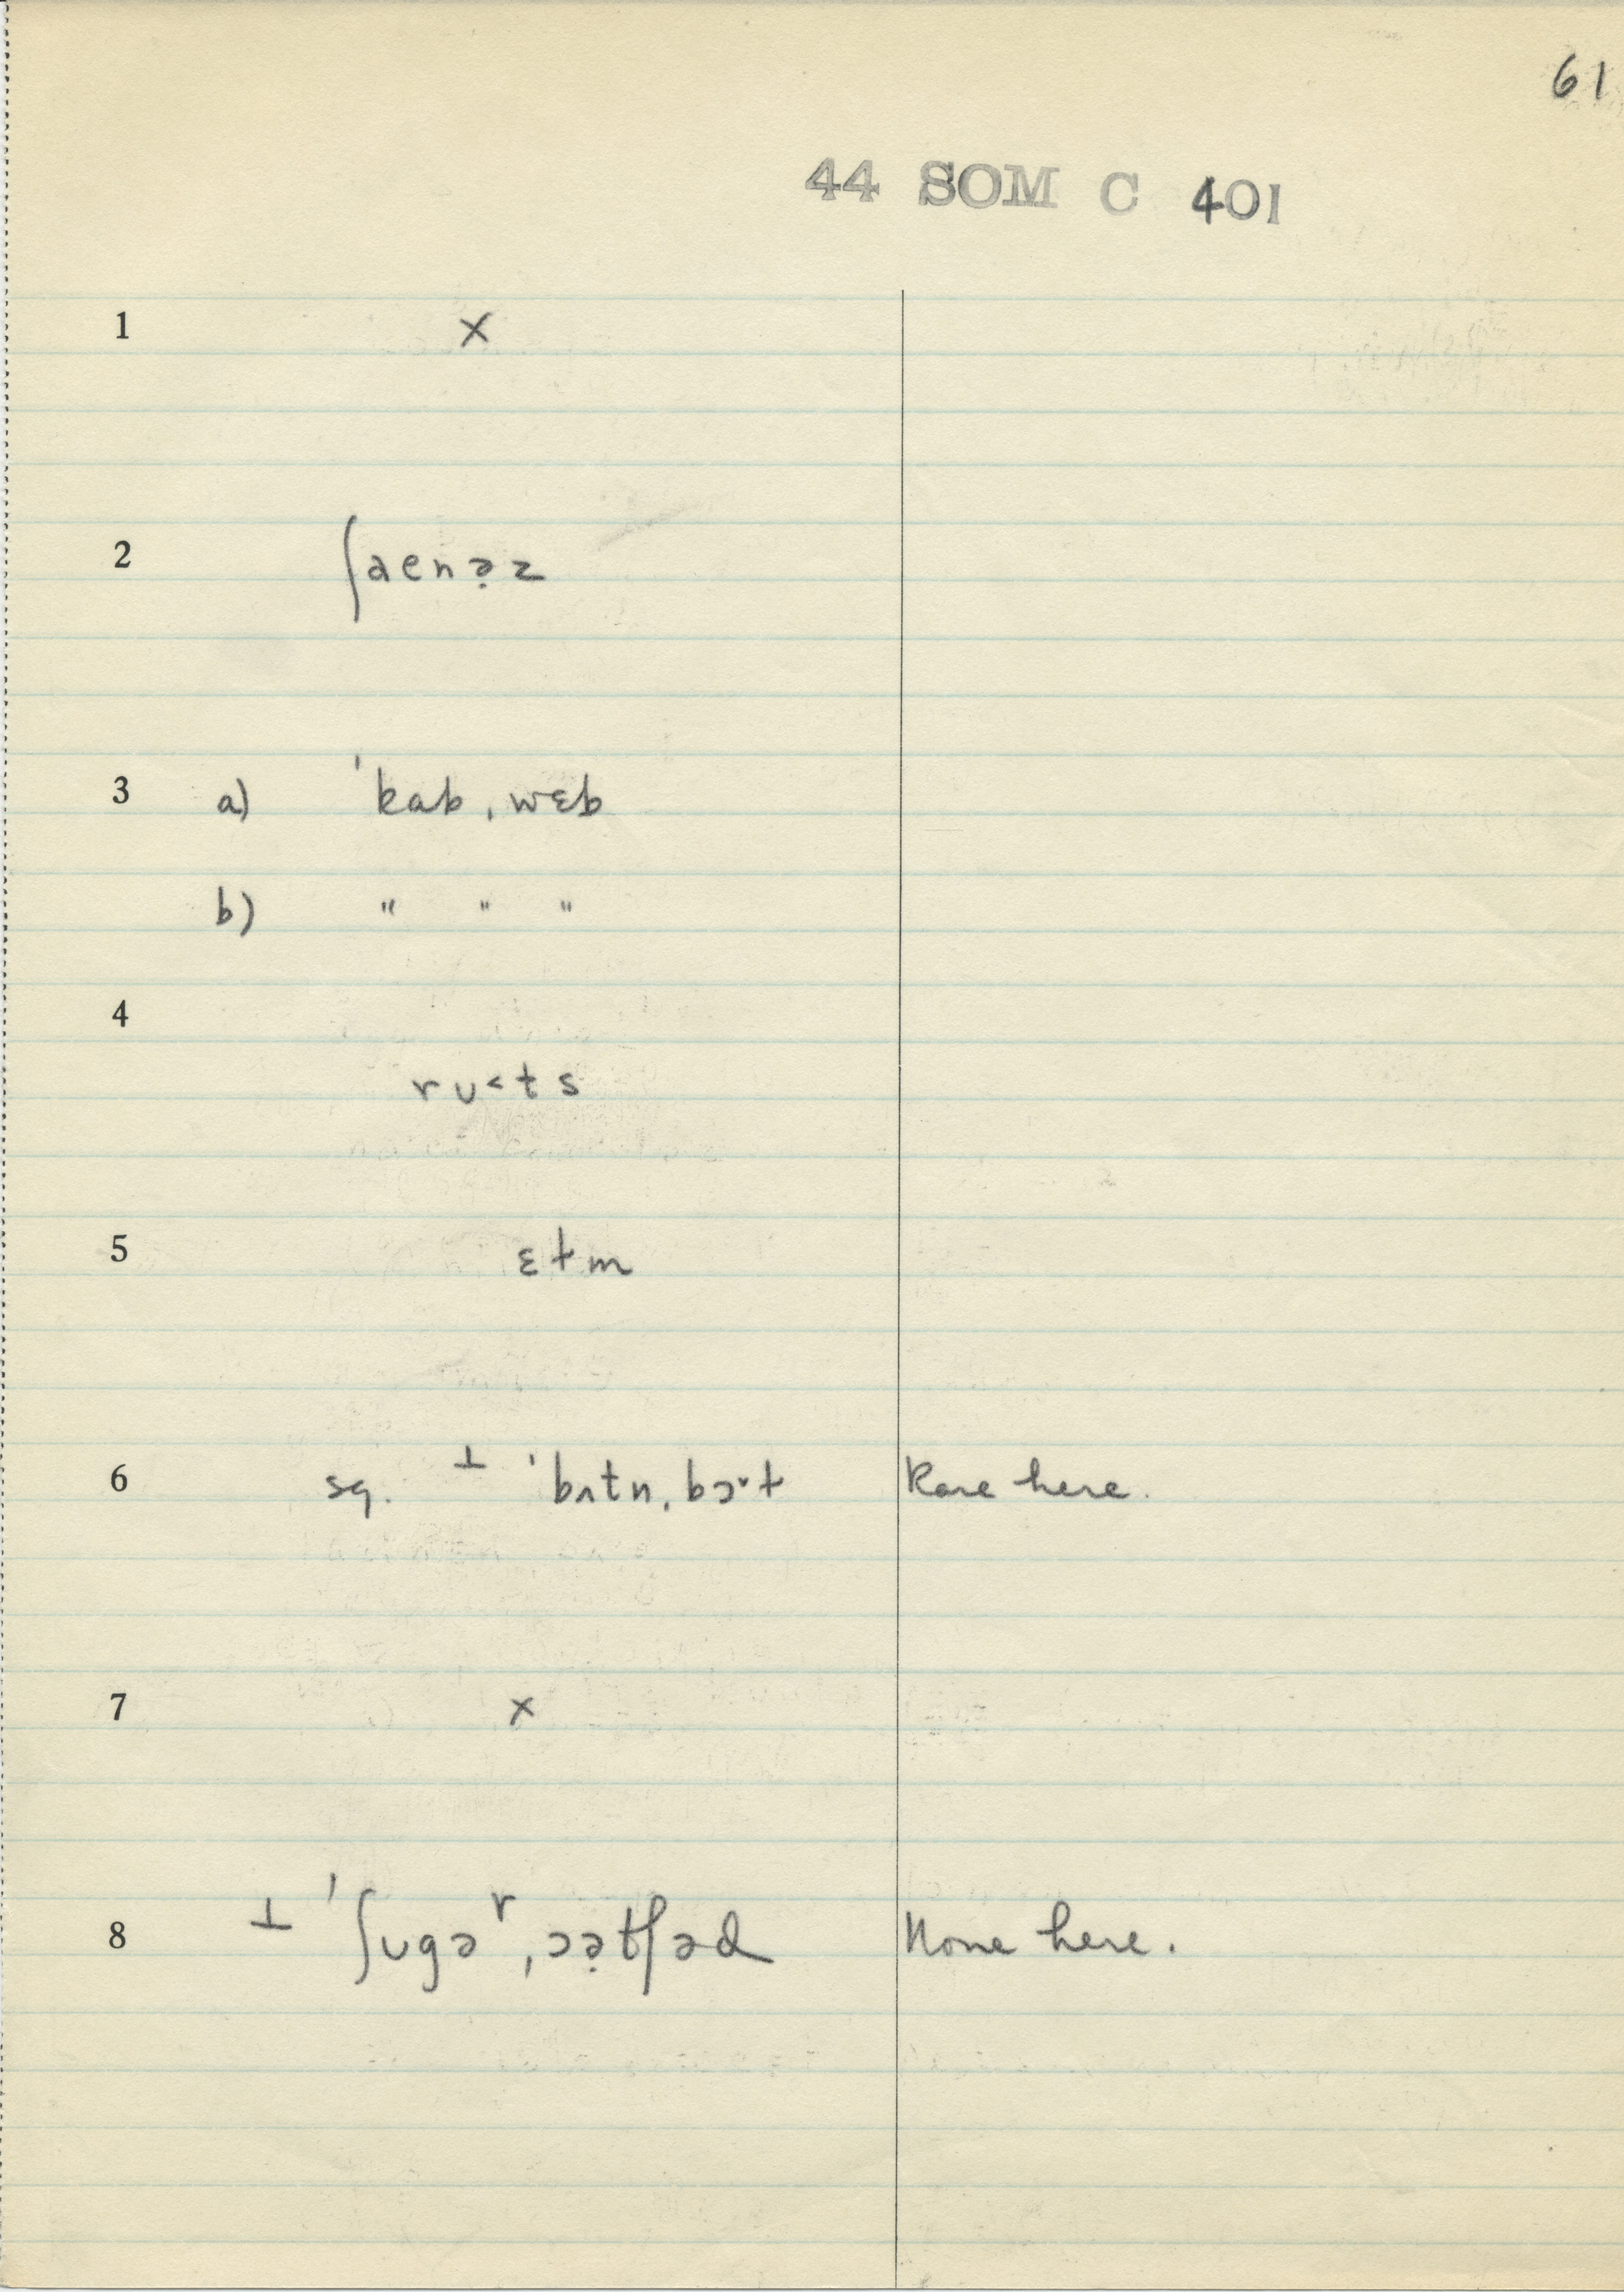 61
44 SOM C 401
1 ×
2 ʃaenə̣z
3 a) ˈkab ˌwɛb
b) " " "
4
rʊ˂ts
5 ɛɫm
6 sg. ⊥ ˈbʌtn̩ˌbɔˑɫ Rare here.
7 ×
8 ⊥ ˈʃʊgəʳˌɔə̣tʃəd None here.